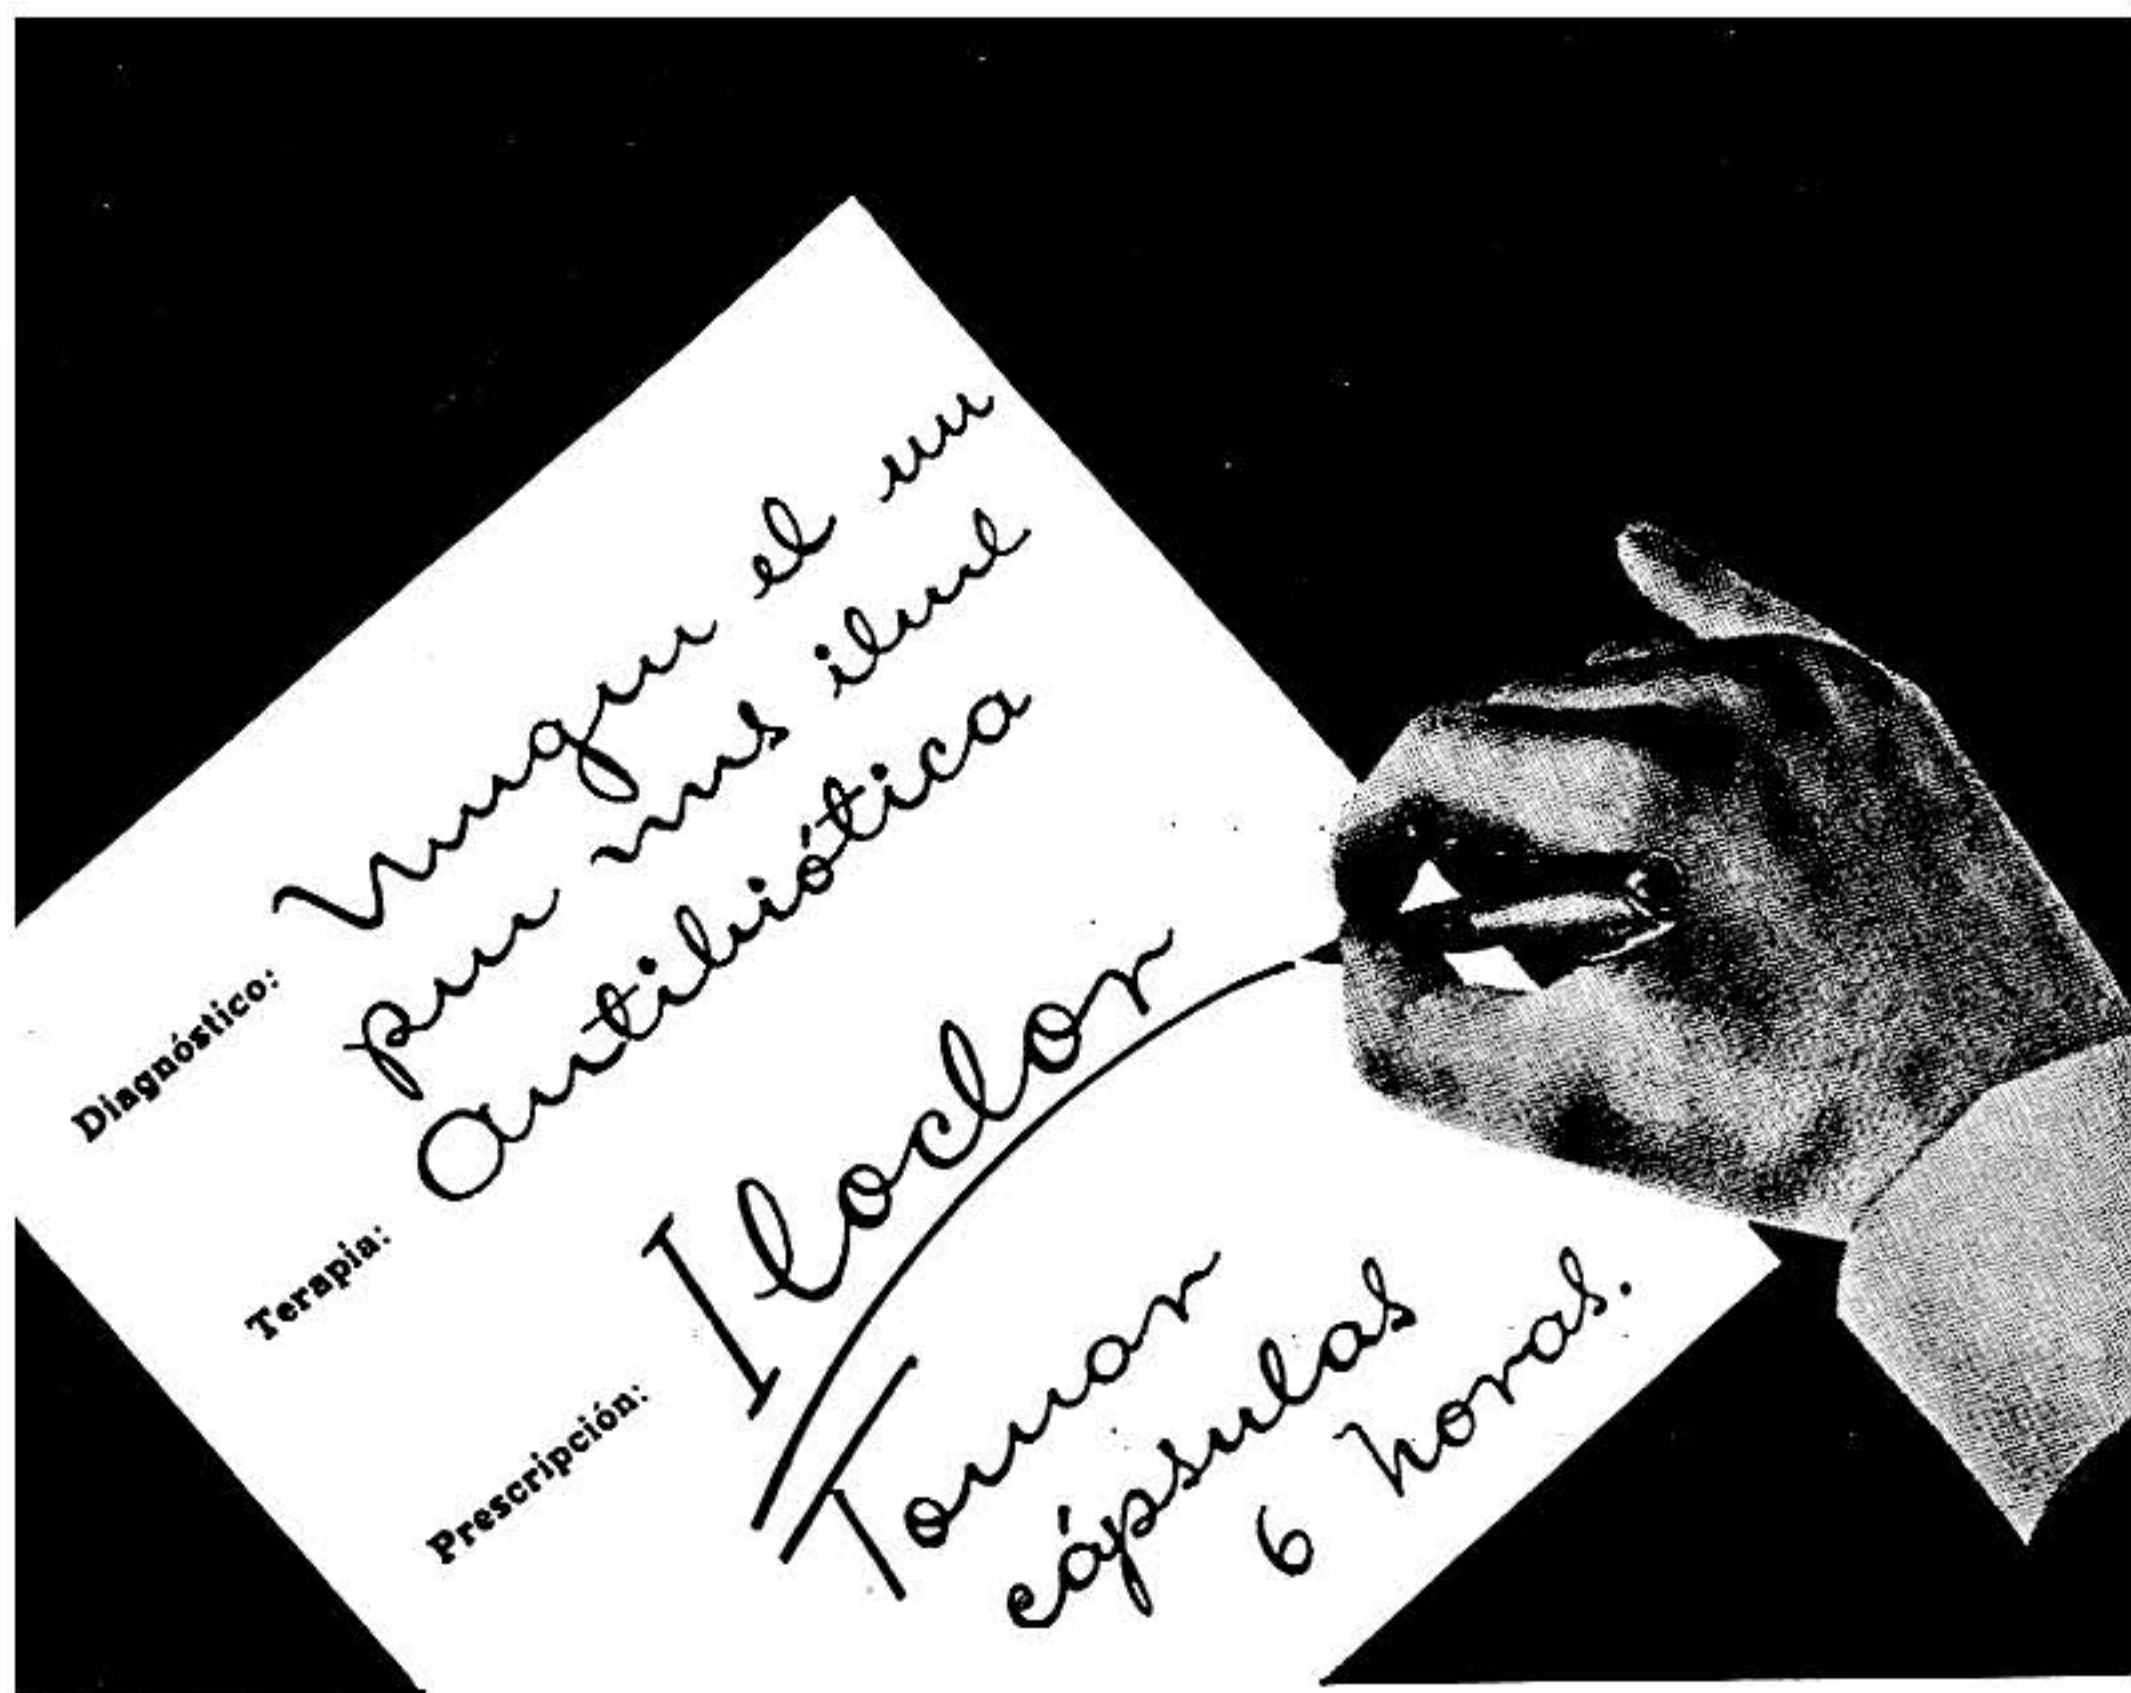 Diagnóstico: el
Terapia: Antibiótica
Prescripción: Iloclor
Tomar
cápsulas
6 horas.